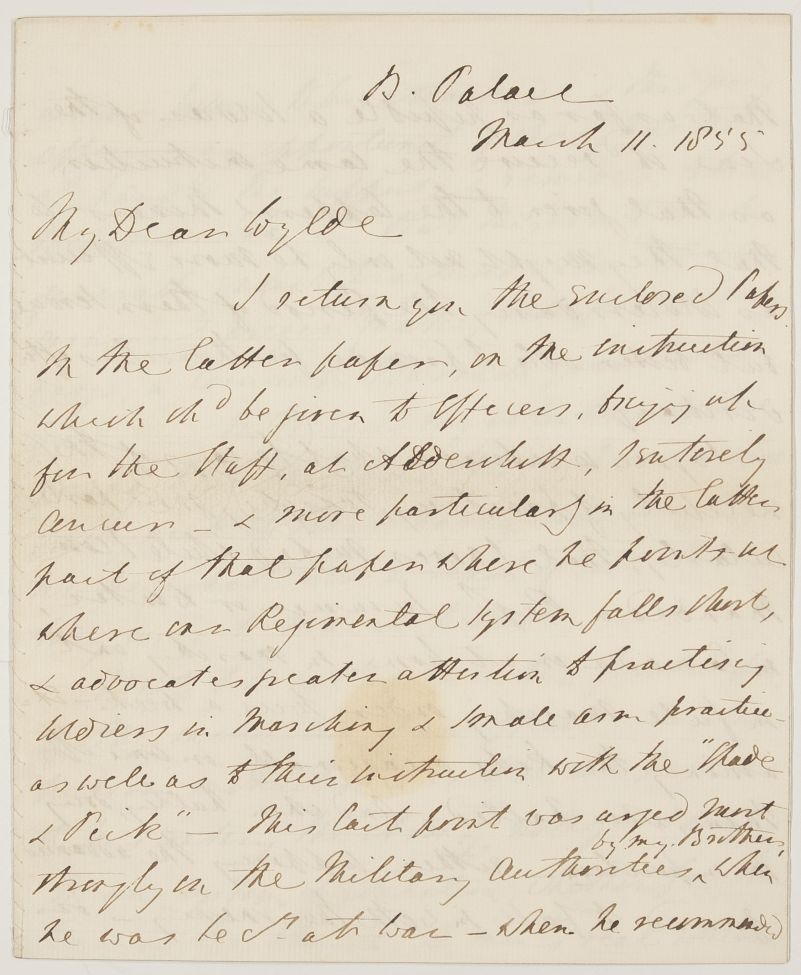 B. Palace
March 11. 1855
My Dear Wylde
I return you the enclosed Papers
In the latter paper, on the instruction
which shd be given to officers, bringing up
for the Staff, at Aldershott, I entirely
concur - & more particularly in the latter
part of that paper where he points out
where our Regimental system falls short,
& advocates greater attention to practising
soldiers in Marching & small arm practice -
as well as to their instruction with the "Spade
& Pick" - This last point was urged most
by my Brother,
strongly on the Military Authorities, when
he was Secy at War - when he recommended